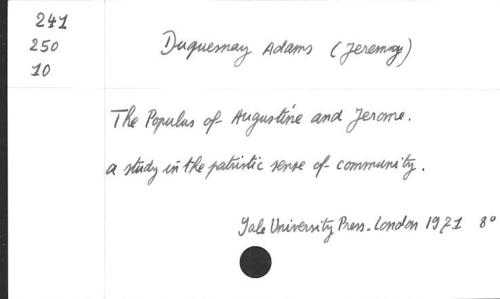 241
250
10
Duquesnay Adams (Jeremy)
The Populus of Augustine and Jerome.
a study in the patristic sense of community.
Yale University Press. London 1971 8°